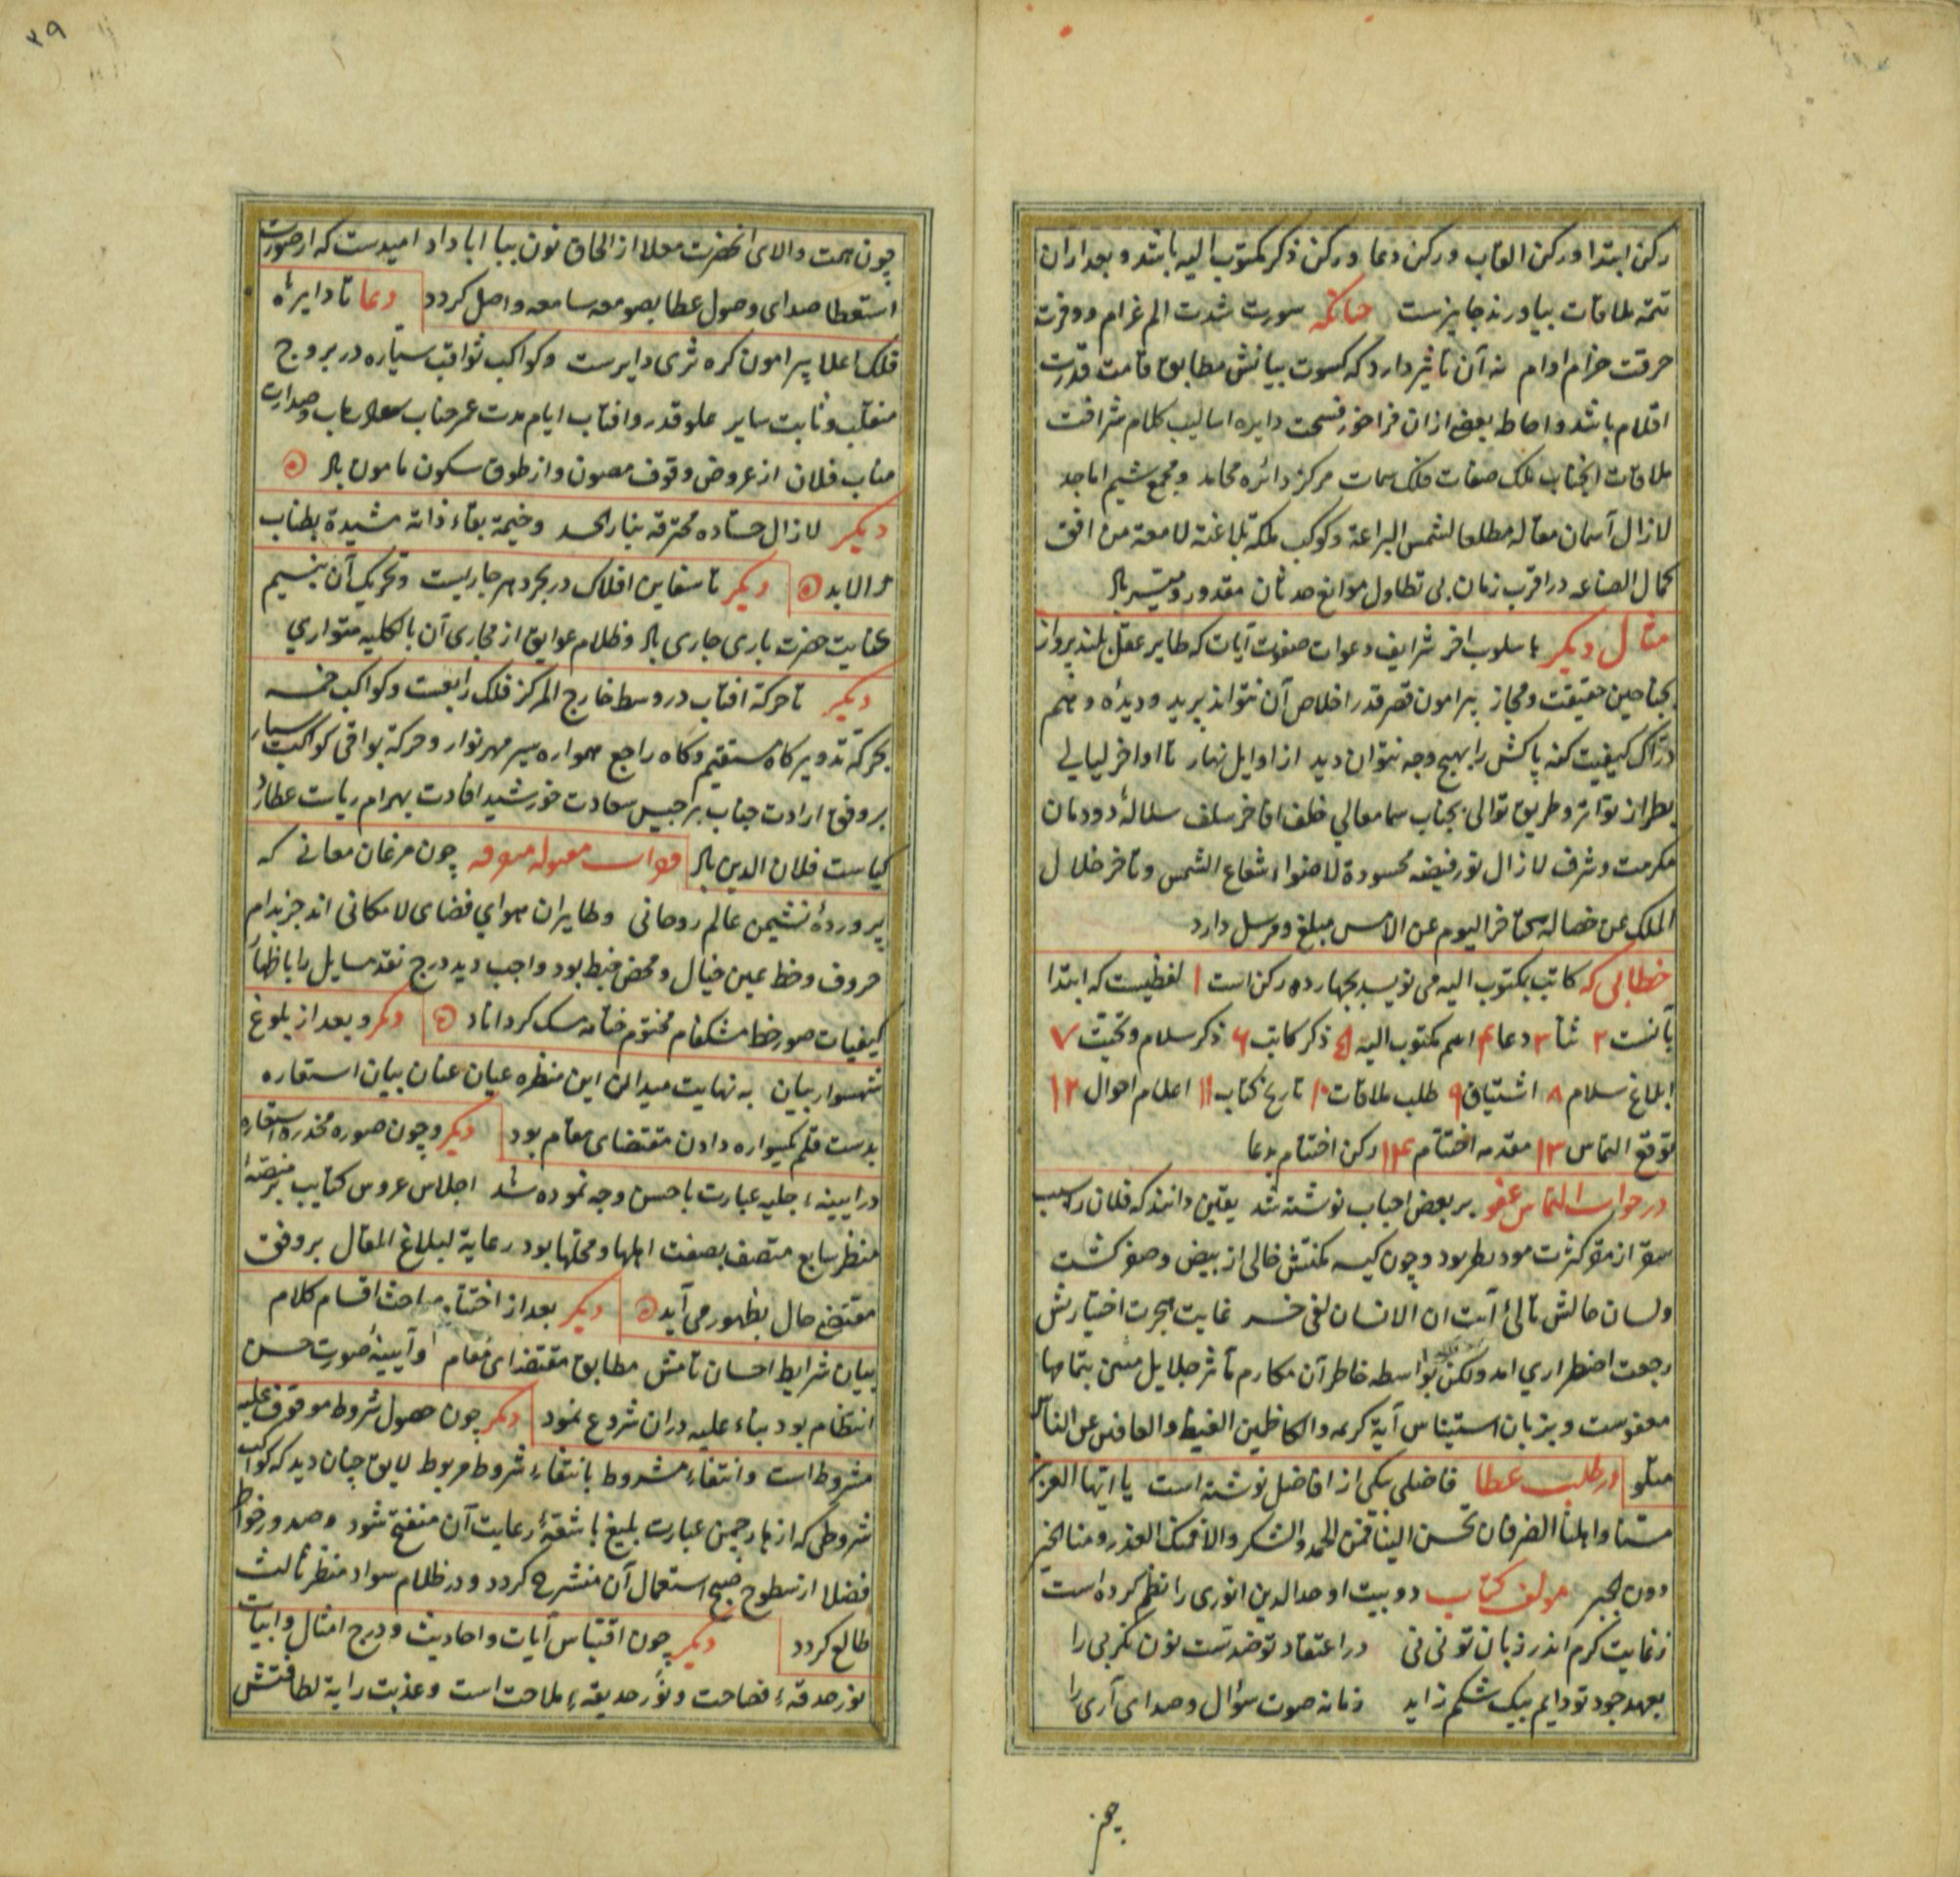 رکن ابتدا و رکن القاب و رکن دعا و رکن ذکر مکتوب الیه باشد و بعد ازان
تتمه ملاقات بیاورند جایزست چنانکه سورت شدت الم غرام و وفرت
حرقت ضرام اوام نه آن تاثیر دارد که کسوت بیانش مطابق قامت قدرت
اقلام باشد و احاطه بعضی ازان فراخور فسحت دایره اسالیب کلام شرافت
ملاقات آنجناب ملک صفات فلک سمات مرکز دائره محامد و مجمع شیم اماجد
لازال آسمان مقاله مطلعا لشمس البراعة و کوکب ملکة بلاغته لامعة من افق
کمال الصناعه در اقرب زمان بی تطاول موانع حدثان مقدور و میسر باد
مثال دیگر با سلوب اخر شرایف دعوات صفوت آیات که طایر عقل بلند پرواز
بجناحین حقیقت و مجاز پیرامون قصر قدر اخلاص آن نتواند پرید و دیدۀ وهم
درّاک کیفیت کنه پاکش را بهیچ وجه نتوان دید از اوایل نهار تا اواخر لیالی
بطراز تواتر و طریق توالی بجناب سما معالی خلف افاخر سلف سلالۀ دودمان
مکرمت و شرف لازال نور فیضه محسودة لاضواء شعاع الشمس و تاخر خلال
الملک عن خصاله تاخر الیوم عن الامس مبلغ و مرسل دارد
خطابی که کاتب بمکتوب الیه می نویسد بچهارده رکن است ۱ لفظیست که ابتدا
بآنست ۲ ثنا ۳ دعا ۴ اسم مکتوب الیه ۵ ذکر کاتب ۶ ذکر سلام و تحیّت ۷
ابلاغ سلام ۸ اشتیاق ۹ طلب ملاقات ۱۰ تاریخ کتاب ۱۱ اعلام احوال ۱۲
توقع التماس ۱۳ مقدمه اختتام ۱۴ رکن اختتام بدعا
در جواب التماس عفو بر بعض احباب نوشته شد یقین دانند که فلان را سبب
سقر از مقر کثرت بود و چون کیسه مکنتش خالی از بیض و صفر گشت
و لسان حالش تالئ آیت ان الانسان لفی خسر غایت هجرت اختیارش
رجعت اضطراری امد ولکن بواسطه خاطر آن مکارم مآثر جلایل بتمامها
معفوست و بزبان استیناس آیة کریمه والکاظمین الغیظ والعافین عن الناس
متلو در طلب عطا فاضلی بیکی از افاضل نوشته است یا ایها العزیز
مسنا و اهلنا الضر فان تحسن الینا فمن الحمد والشکر والا فمنک العذر ومنا الخیر
دون الجبر مولف کتاب دو بیت اوحد الدین انوری را نظم کرده است
ز غایت کرم اندر زبان تو نی نی در اعتقاد تو ضدست نون مکر بی را
بعهد جود تو دایم بیک شکم زاید زمانه صوت سؤال و صدای آری را
چون
۳۹
چون همت والای انحضرت معلا از الحاق نون ببا اباداد امیدست که از صورت
استعطا صدای وصول عطا بصومعه سامعه واصل کردد دعا تا دایرۀ
فلک اعلا پیرامون کره ثری دایرست و کواکب ثواقب سیّاره در بروج
منقلب و ثابت سایر علو قدر و افتاب ایام مدت عمر جناب و صدارت
مناب فلان از عروض وقوف مصون و از طوق سکون مامون باد
دیگر لازال حساده محترقه بنار الحسد و خیمة بقاء ذاته مشیدة بطناب
الابد دیگر تا سفاین افلاک در بحر دهر جاریست و تحریک آن بنسیم
عنایت حضرت باری جاری باد و ظلام عوایق از مجاری آن بالکلیه متواری
دیگر تا حرکة افتاب در وسط خارج المرکز فلک رابعست و کواکب خمسه
بحرکة تدویر کاه مستقیم و کاه راجع همواره سیر مهر نوار و حرکة بواقی کواکب سیار
بر وفق ارادت جناب برجیس سعادت خورشید افادت بهرام ریاست عطارد
کیاست فلان الدین باد مقبوله چون مرغان معانی که
پروردۀ نشیمن عالم روحانی و طایران هوای فضای لامکانی اند جز بدام
حروف و خط بعین خیال و محض خبط بود واجب دید درج نقد مسایل را باظهار
کیفیات صور خط مشکفام مختوم ختامه مسک کرداناد دیگر و بعد از بلوغ
شهسوار بیان به نهایت میدان این منظره عیان عنان بیان استعاره
بدست قلم یکسواره دادن مقتضای مقام بود دیگر و چون صوره مخدره استعاره
در ایینۀ جلیه عبارت باحسن وجه نموده شد اجلاس عروس کتایب بر منصّۀ
منظر سابع متصف بصفت اهلها و محلها بود رعایة لبلاغ المقال بر وفق
مقتضی حال بظهور می آید دیگر بعد از اختتام مباحث اقسام کلام
بیان شرایط احسان تامش مطابق مقتضای مقام و آیینۀ صورت حسن
انتظام بود بناء علیه دران شروع نمود دیگر چون حصول شروط موقوف علیه
مشروط است و انتفاء مشروط بانتفاء شروط مربوط لایق چنان دید که کواکب
شروطی که ازهار چمن عبارت بلیغ باشعّۀ رعایت آن منفتح شود و صدور خواطر
فضلا از سطوح صبح استعمال آن منشرح کردد و در ظلام سواد منظر ثالث
طالع کردد دیگر چون اقتباس آیات و احادیث و درج امثال و ابیات
نور حدقۀ فصاحت و نَور حدیقۀ ملاحت است و عذبت رایة لطافتش